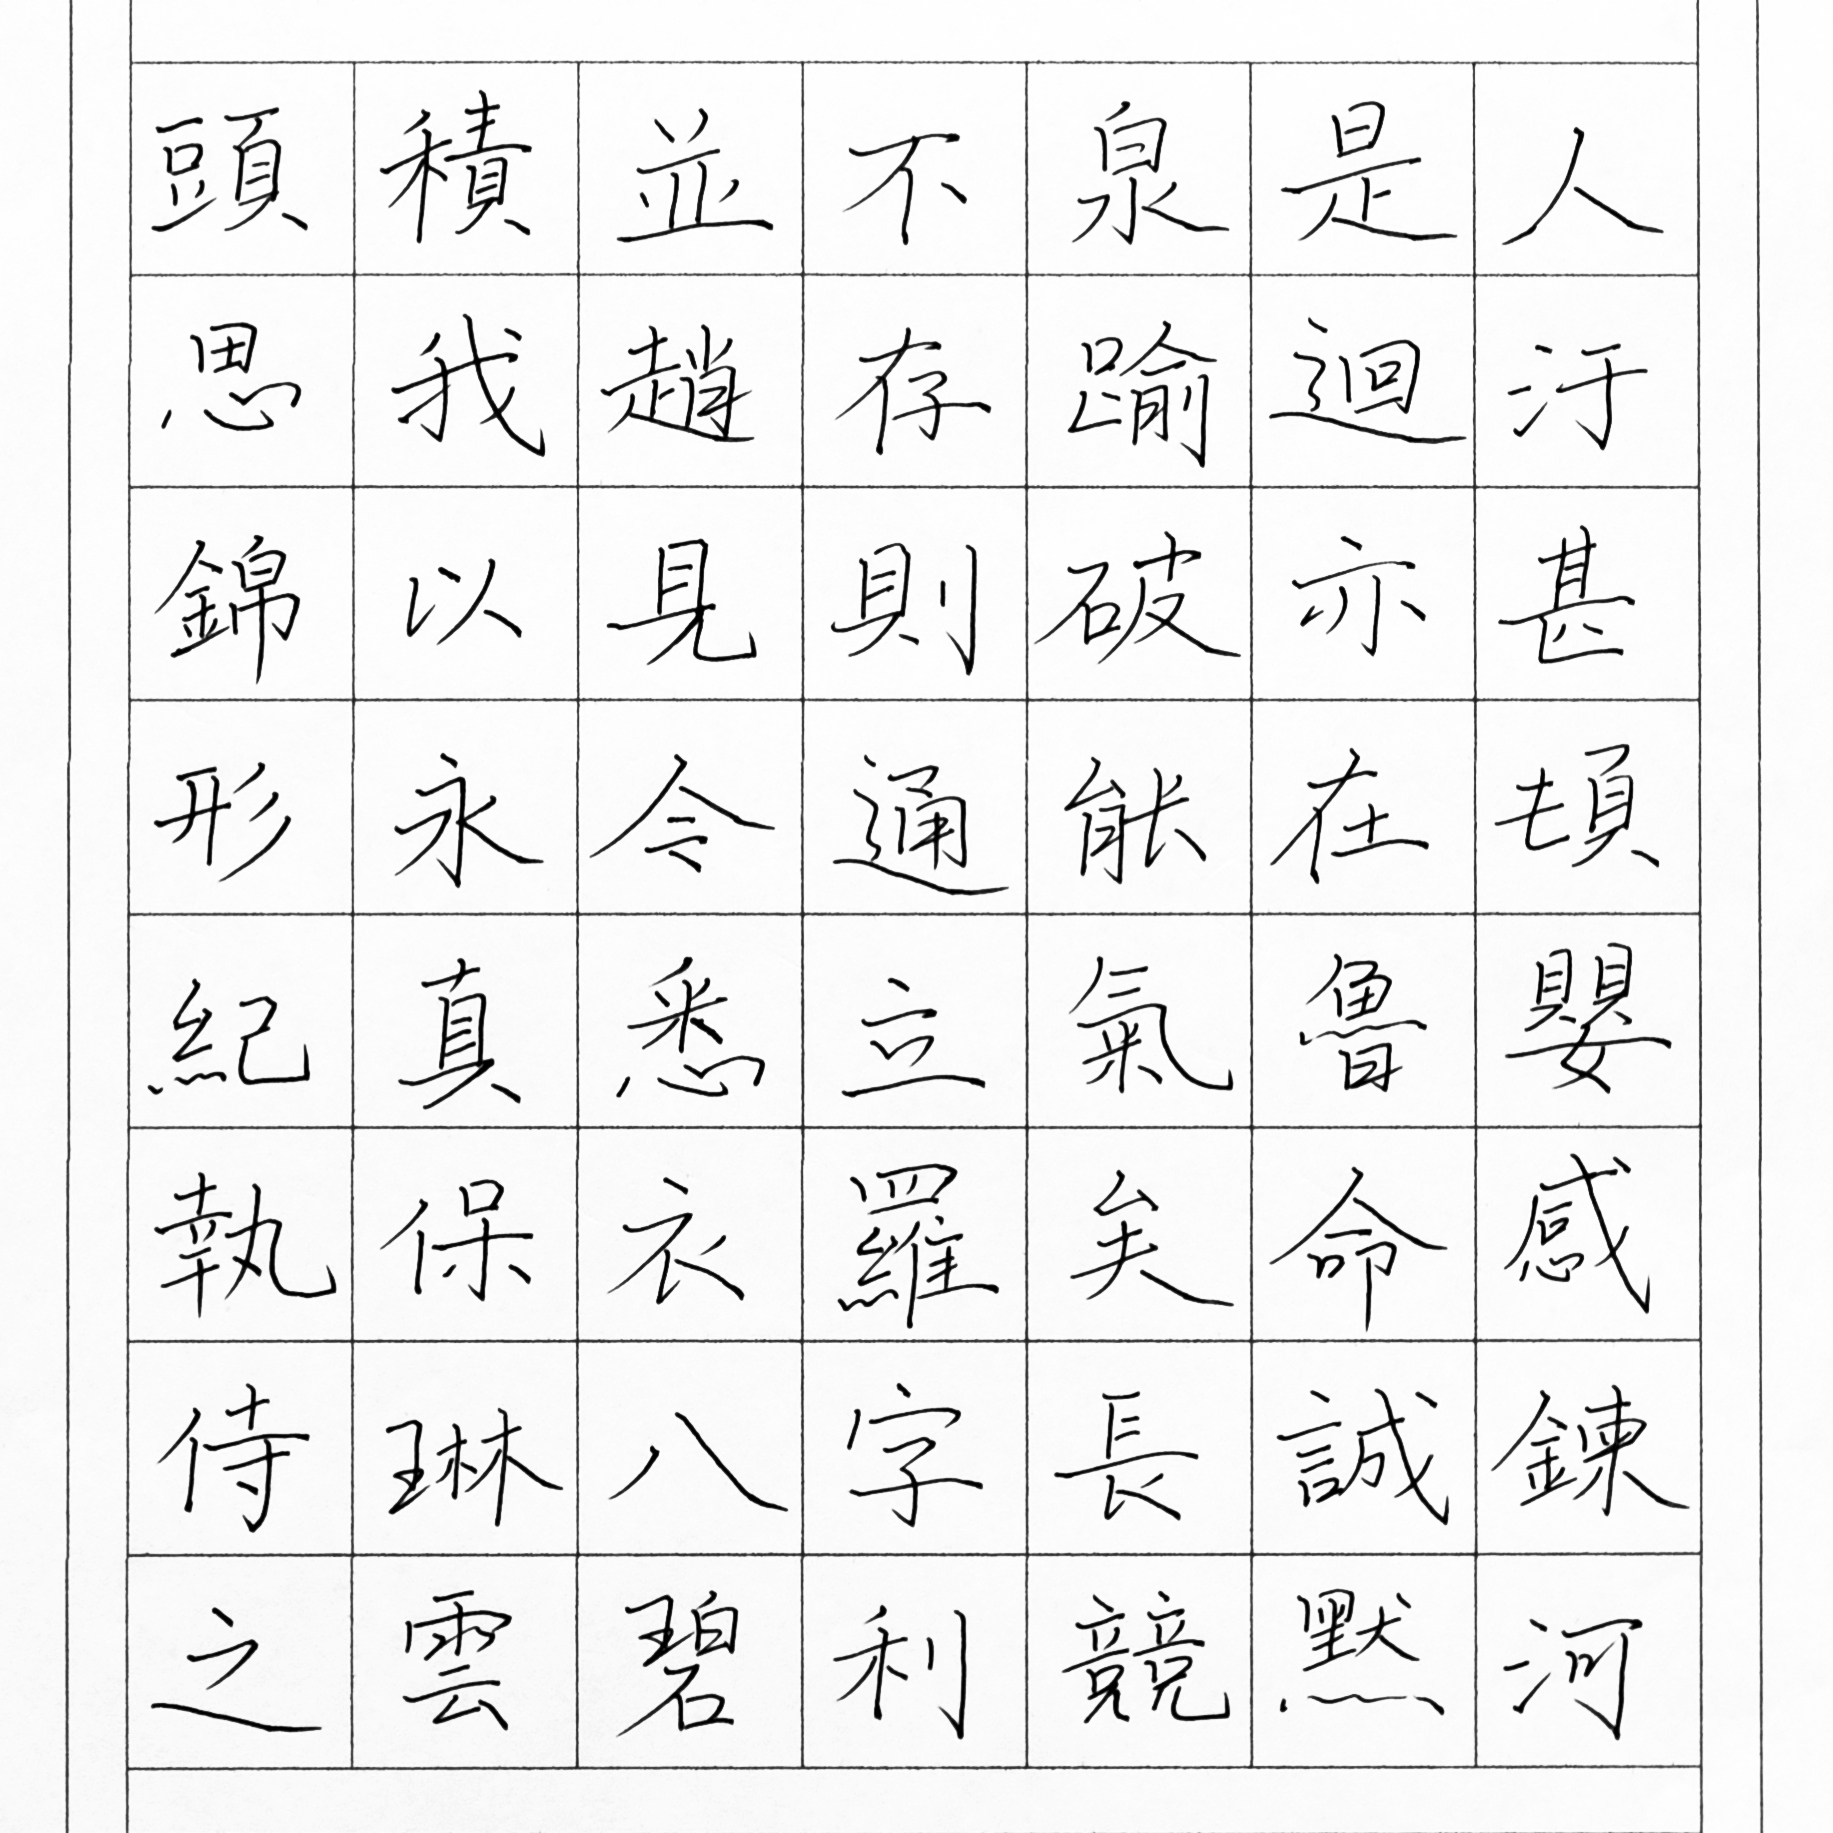 人汙甚頓嬰感鍊河
是迴亦在魯命誠默
泉踰破能氣矣長競
不存則通立羅字利
並趙見令悉衣八碧
積我以永真保琳雲
頭思錦形紀執侍之